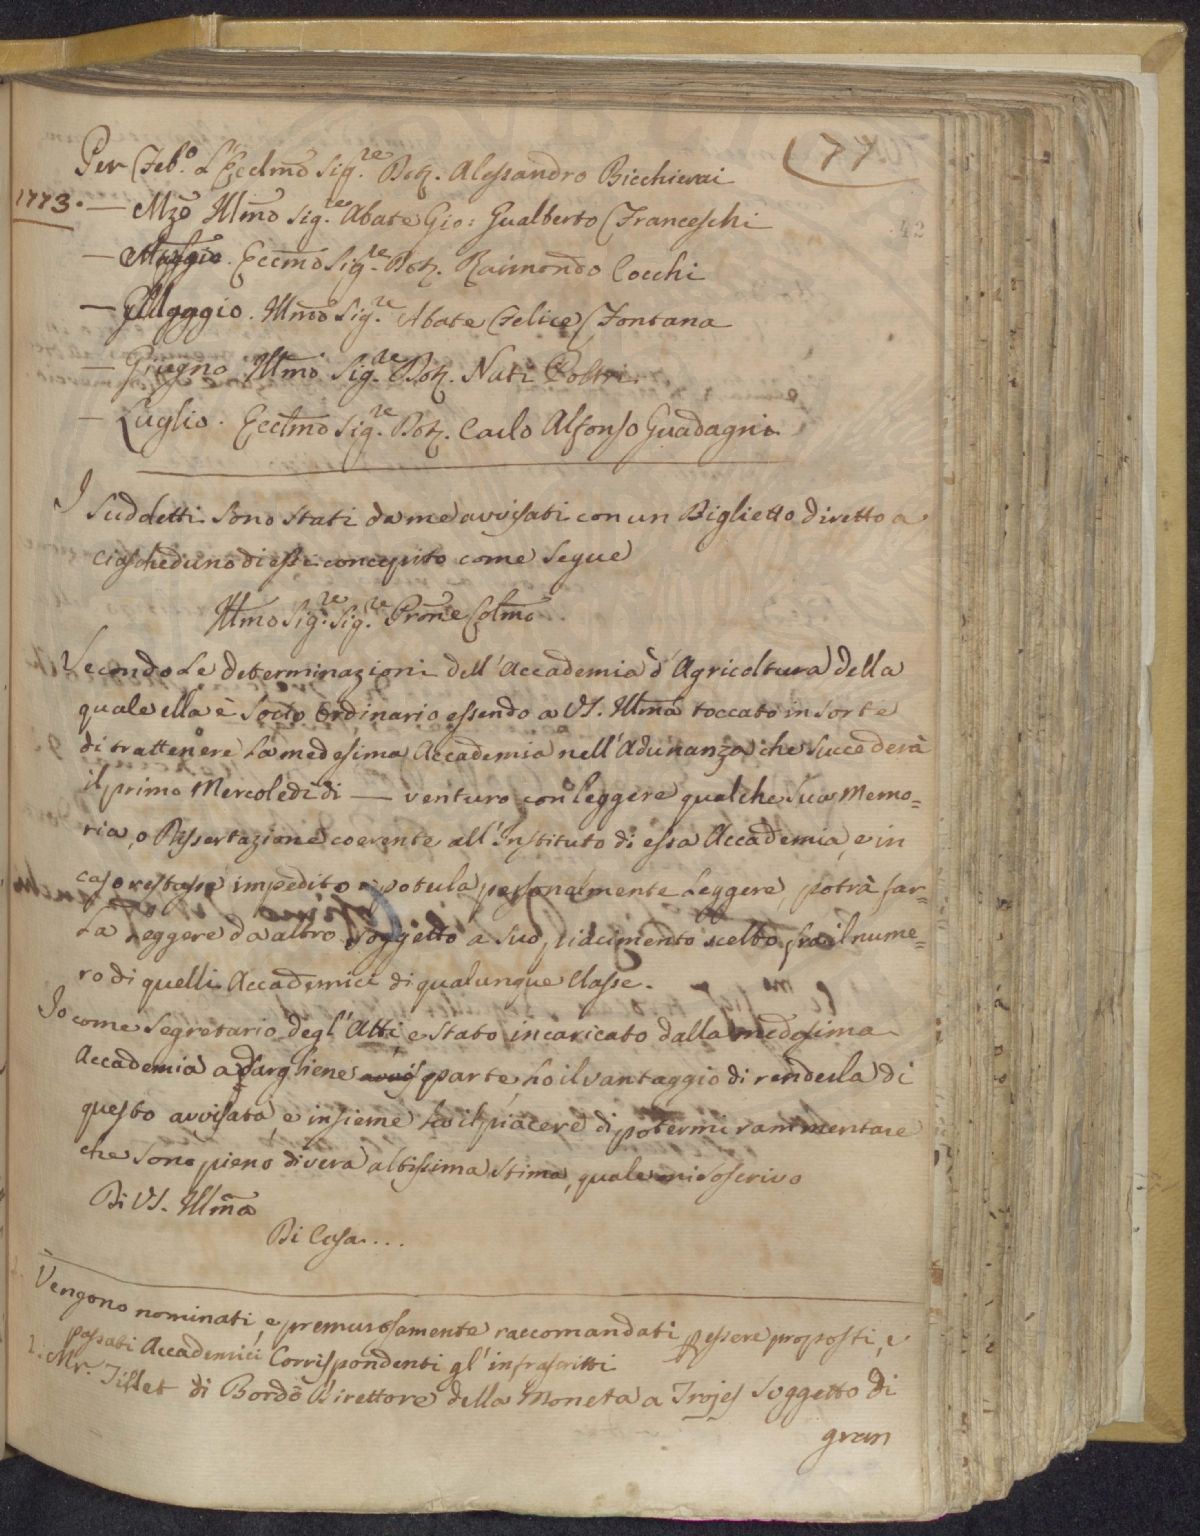 (77
42
Per Feb.º L'Eccelmo Sig.re Dott. Alessandro Bicchierai
1773. — Mzo Illmo Sig.e Abate Gio: Gualberto Franceschi
— Eccmo Sig.re Dott. Raimondo Cocchi
— Maggio. Illmo Sig.re Abate Felice Fontana
— Giugno Illmo Sig.re Dott. Nati Poltri
— Luglio. Eccelmo Sig.re Dott. Carlo Alfonso Guadagni
I suddetti sono stati da me avvisati con un Biglietto diretto a
ciascheduno di essi concepito come segue
Illmo Sig.re Sig.re Prone Colmo
Secondo le determinazioni dell'Accademia d'Agricoltura della
quale ella è Socio Ordinario essendo a VS. Illma toccato in sorte
di trattenere la medesima Accademia nell'Adunanza che succederà
il primo Mercoledì di — venturo con leggere qualche sua Memo=
ria, o Dissertazione coerente all'Instituto di essa Accademia, e in
caso restasse impedito a potula personalmente leggere, potrà far=
la leggere da altro soggetto a suo piacimento scelto fra il nume=
ro di quelli Accademici di qualunque Classe.
Io come Segretario degl'Atti e stato incaricato dalla medesima
Accademia a dargliene parte, ho il vantaggio di renderla di
questo avvisata, e insieme ho il piacere di potermi rammentare
che sono pieno di vera altissima stima, quale mi soscrivo
Di VS. Illma
Di Casa...
Vengono nominati, e premurosamente raccomandati p essere proposti, e
passati Accademici Corrispondenti gl'infrascritti
1. Mr. Tillet di Bordò Direttore della Moneta a Trojes Soggetto di
gran